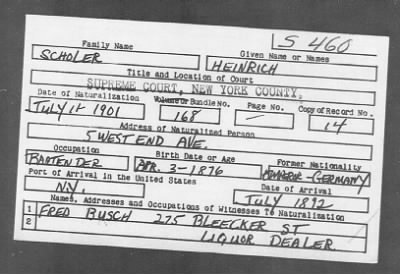 S 460
Family Name Given Name or Names
SCHOLER HEINRICH
Title and Location of Court
SUPREME COURT, NEW YORK COUNTY.
Date of Naturalization Volume or Bundle No. Page No. Copy of Record No.
JULY 1st 1901 168 — 14
Address of Naturalized Person
5 WEST END AVE.
Occupation Birth Date or Age Former Nationality
BARTENDER APR. 3-1876 GERMANY
Port of Arrival in the United States Date of Arrival
N.Y. JULY 1892
Names, Addresses and Occupations of Witnesses To Naturalization
1 FRED BUSCH 275 BLEECKER ST
2 LIQUOR DEALER